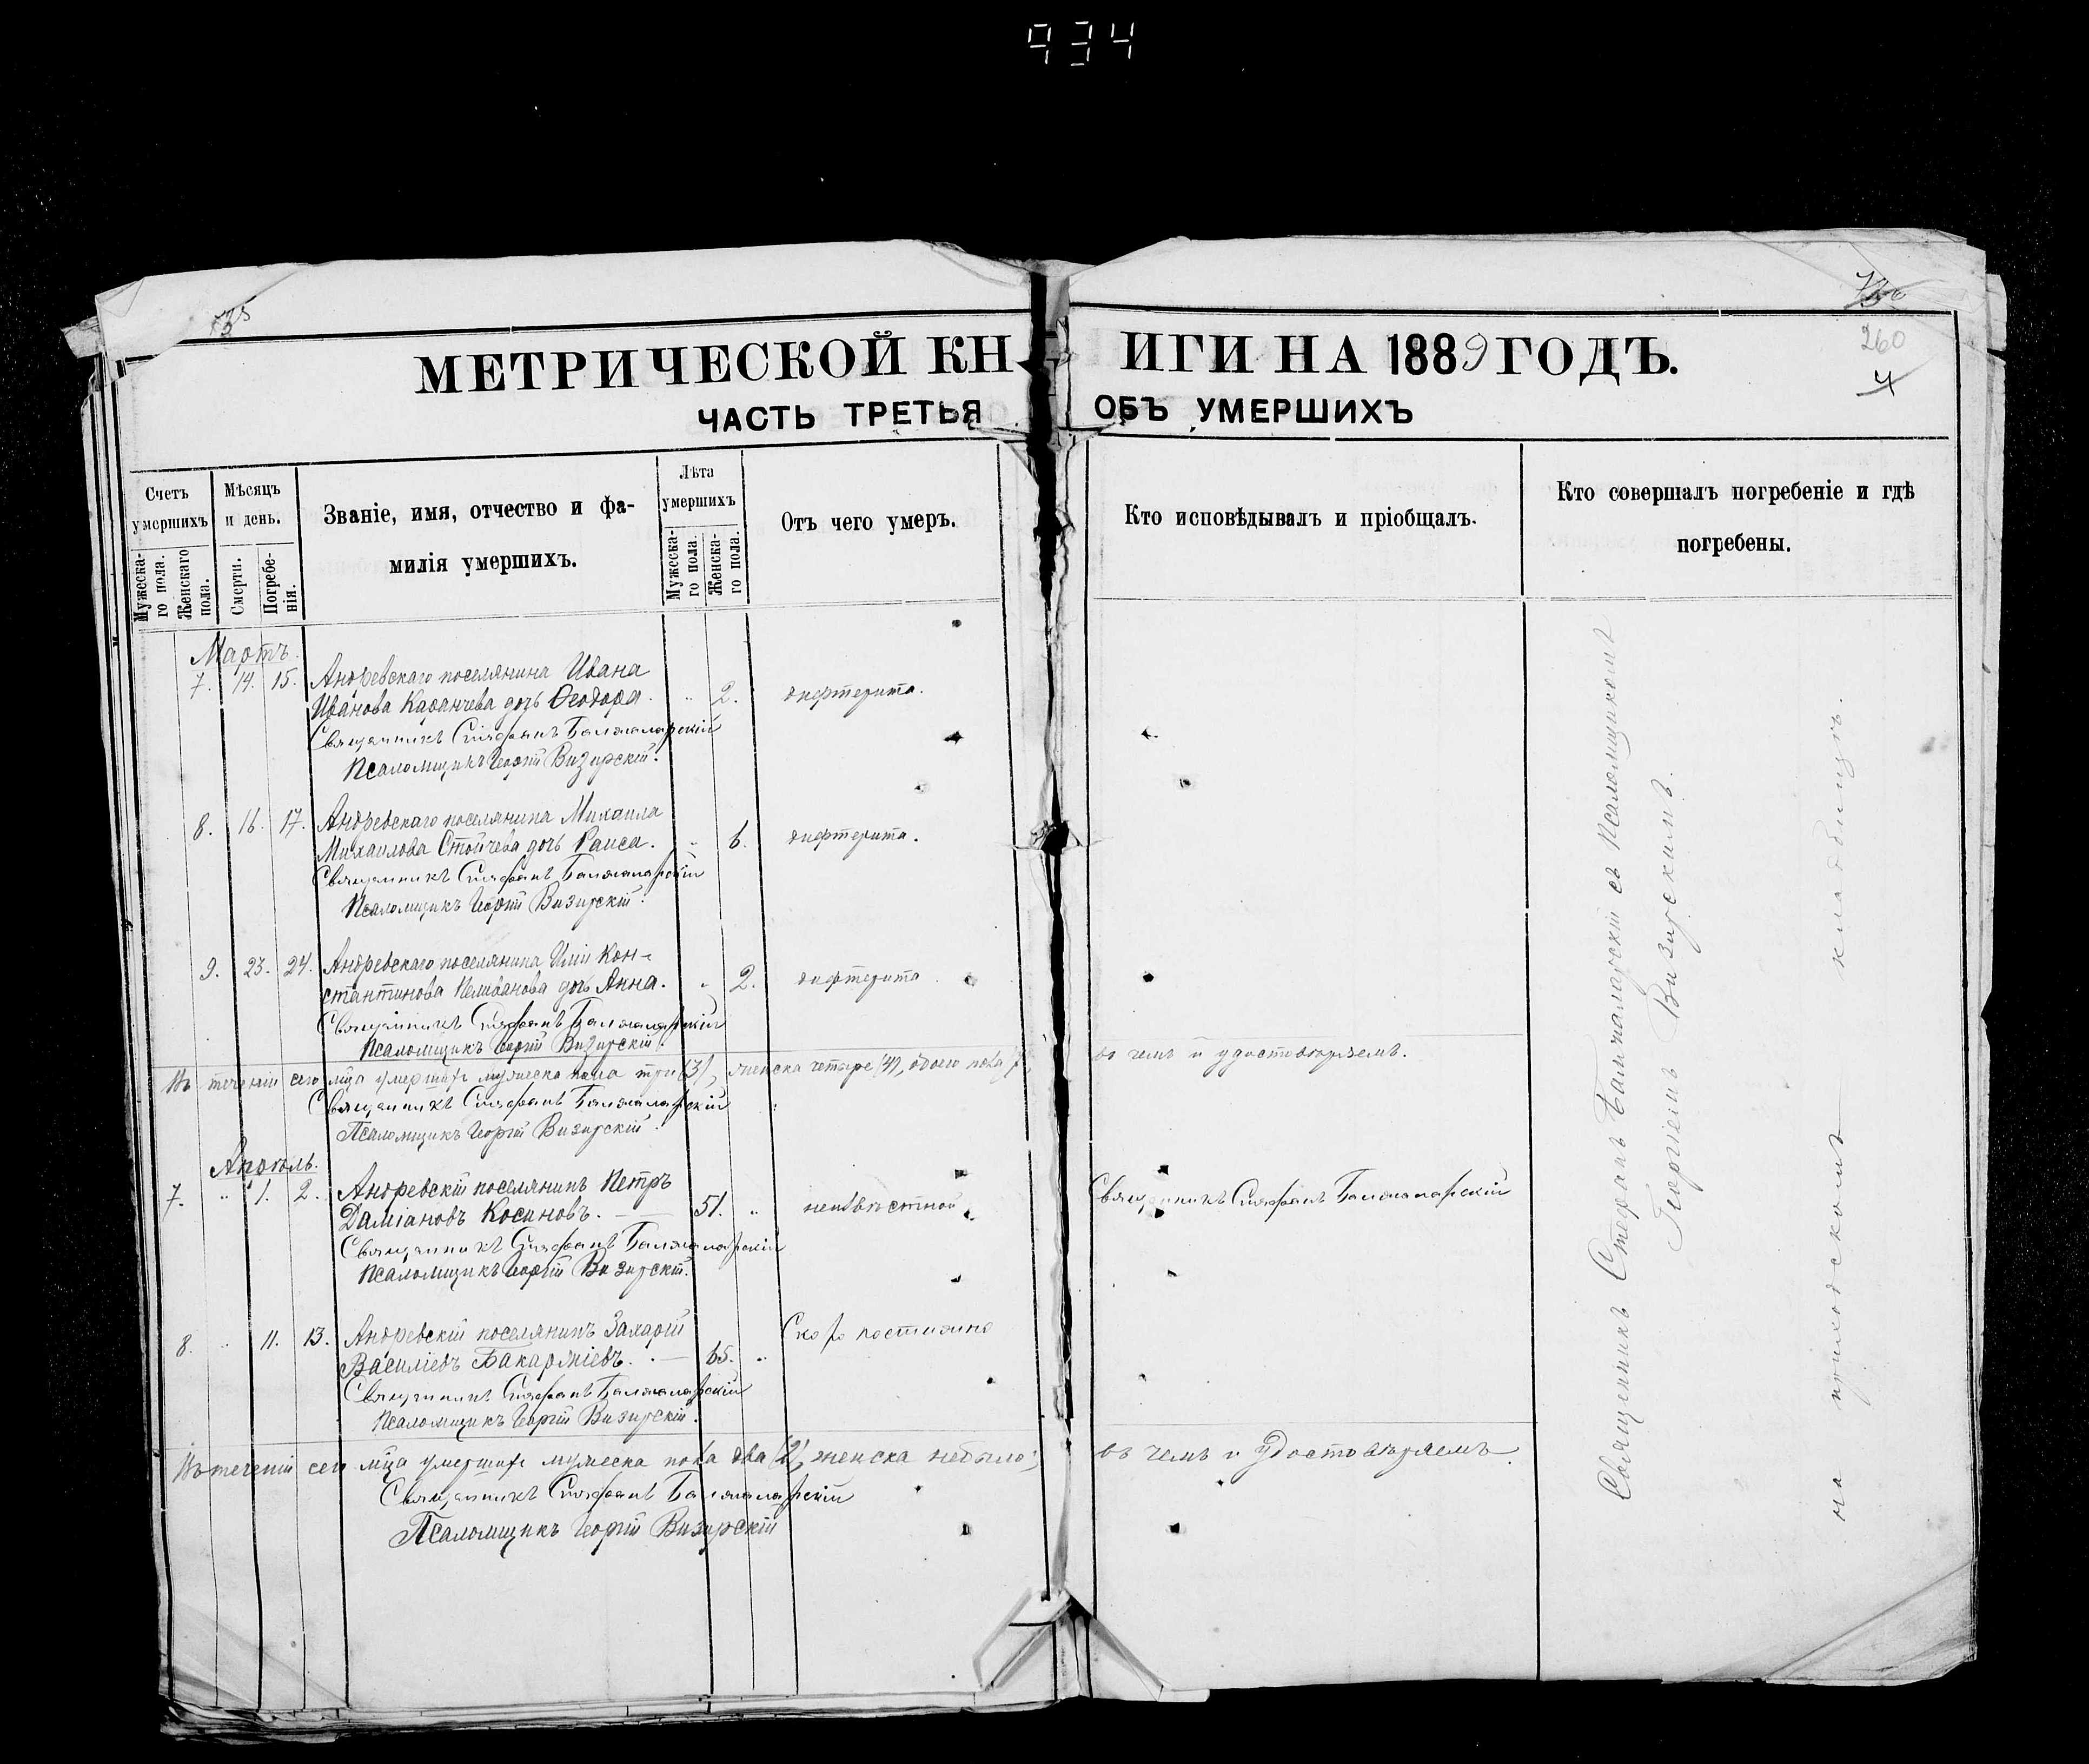 934
735
МЕТРИЧЕСКОЙ КНИГИ НА 1889 ГОДЪ.
260
4
ЧАСТЬ ТРЕТЬЯ ОБЪ УМЕРШИХЪ
Счетъ умершихъ
Мужеска-го пола.
Женскаго пола.
Мѣсяцъ и день.
Смерти.
Погребе-нія.
Званіе, имя, отчество и фа-
милія умершихъ.
Лѣта умершихъ
Мужеска-го пола.
Женска-го пола.
Отъ чего умеръ.
Кто исповѣдывалъ и пріобщалъ.
Кто совершалъ погребеніе и гдѣ
погребены.
Мартъ
7. 14. 15. Андревскаго поселянина Ивана
Иванова Каранчева дочь Ѳеодора. " 2. дифтерита.
Священникъ Стефанъ Балжаларскій
Псаломщикъ Георгій Визирскій.
8. 16. 17. Андревскаго поселянина Михаила
Михаилова Стойчева дочь Раиса. " 6. дифтерита.
Священникъ Стефанъ Балжаларскій
Псаломщикъ Георгій Визирскій.
9. 23. 24. Андревскаго поселянина Иліи Кон-
стантинова Пеливанова дочь Анна. " 2. дифтерита
Священникъ Стефанъ Балжаларскій
Псаломщикъ Георгій Визирскій.
Въ теченіи сего мца умершихъ мужеска пола три (3), женска четыре (4), обоего пола 7, въ чемъ и удостовѣряемъ.
Священникъ Стефанъ Балжаларскій
Псаломщикъ Георгій Визирскій.
Апрѣль.
7. " 1. 2. Андревскій поселянинъ Петръ
Даміановъ Косановъ. 51. " неизвѣстной Священникъ Стефанъ Балжаларскій
Священникъ Стефанъ Балжаларскій
Псаломщикъ Георгій Визирскій.
8. " 11. 13. Андревскій поселянинъ Захарій
Василіевъ Бакарміевъ. 65. " Скоропостижно
Священникъ Стефанъ Балжаларскій
Псаломщикъ Георгій Визирскій.
Въ теченіи сего мца умершихъ мужеска пола два (2), женска небыло; въ чемъ и удостовѣряемъ.
Священникъ Стефанъ Балжаларскій
Псаломщикъ Георгій Визирскій
Священникъ Стефанъ Балжаларскій съ Псаломщикомъ
Георгіемъ Визирскимъ.
на приходскомъ кладбищѣ.